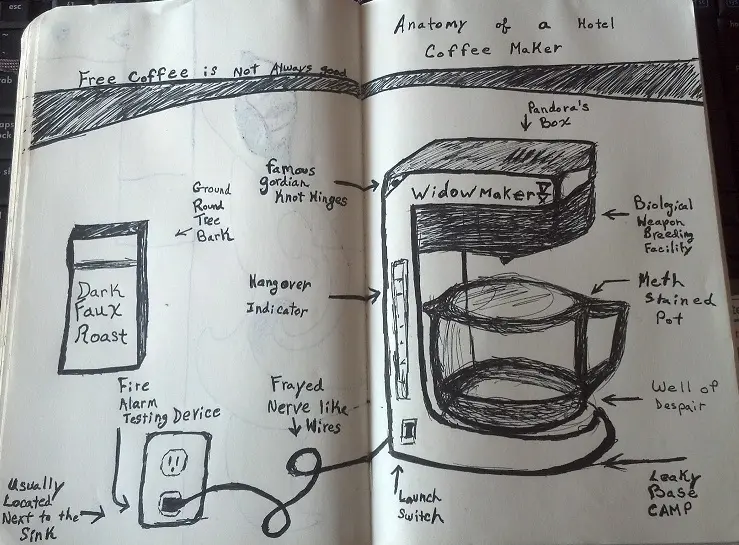 Free Coffee is Not Always good
Anatomy of a Hotel
Coffee Maker
Pandora's
Box
famous
gordian
Knot Hinges
WidowMaker
Ground
Round
Tree
Bark
Biological
Weapon
Breeding
Facility
Dark
Faux
Roast
Hangover
Indicator
Meth
Stained
Pot
Fire
Alarm
Testing Device
Frayed
Nerve like
Wires
Well of
Despair
Usually
Located
Next to the
Sink
Launch
Switch
Leaky
Base
CAMP
esc